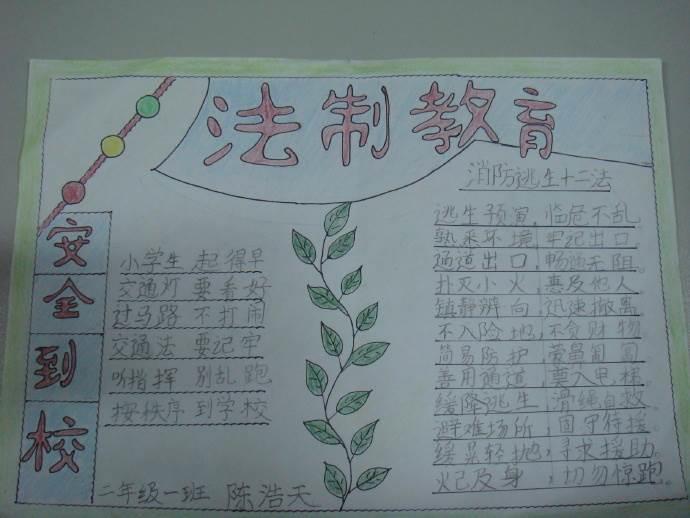 法制教育
安全到校
小学生 起得早
交通灯 要看好
过马路 不打闹
交通法 要记牢
听指挥 别乱跑
按秩序 到学校
二年级一班 陈浩天
消防逃生十二法
逃生预演，临危不乱
熟悉环境，牢记出口
通道出口，畅通无阻。
扑灭小火，惠及他人
镇静辨向，迅速撤离
不入险地，不贪财物
简易防护，匍匐
善用通道，入 梯。
缓降逃生，滑绳自救。
避难场所，固守待援。
缓 轻抛，寻求援助。
火已及身，切勿惊跑。